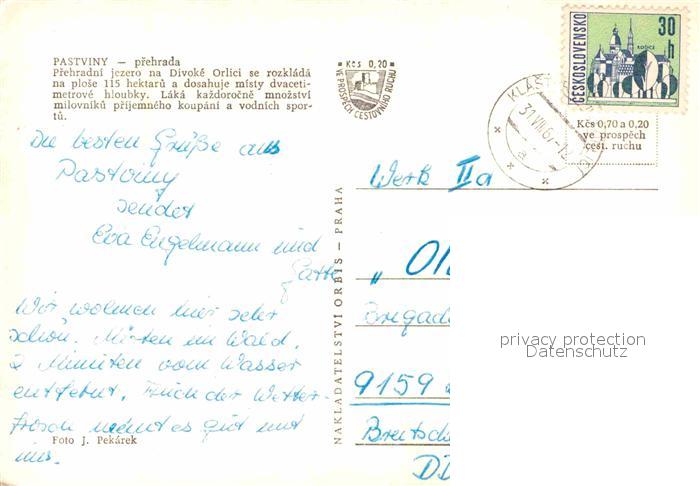 PASTVINY — přehrada
Přehradní jezero na Divoké Orlici se rozkládá
na ploše 115 hektarů a dosahuje místy dvaceti-
metrové hloubky. Láká každoročně množství
milovníků příjemného koupání a vodních spor-
tů.
Kčs 0,20
VE PROSPĚCH CESTOVNÍHO RUCHU
ČESKOSLOVENSKO
30 h
KOŠICE
KLÁŠT
31.VIII.67-1
a
Kčs 0,70 a 0,20
ve prospěch
cest. ruchu
Die besten Grüße aus
Pastviny
sendet
Eva Engelmann und
Gatte
Wir wohnen hier sehr
schön. Mitten im Wald.
2 Minuten vom Wasser
entfernt. Auch der Wetter-
frosch meint es gut mit
uns.
Foto J. Pekárek
NAKLADATELSTVÍ ORBIS — PRAHA
Werk IIa
„OI
Brigad
9159
DD
privacy protection
Datenschutz